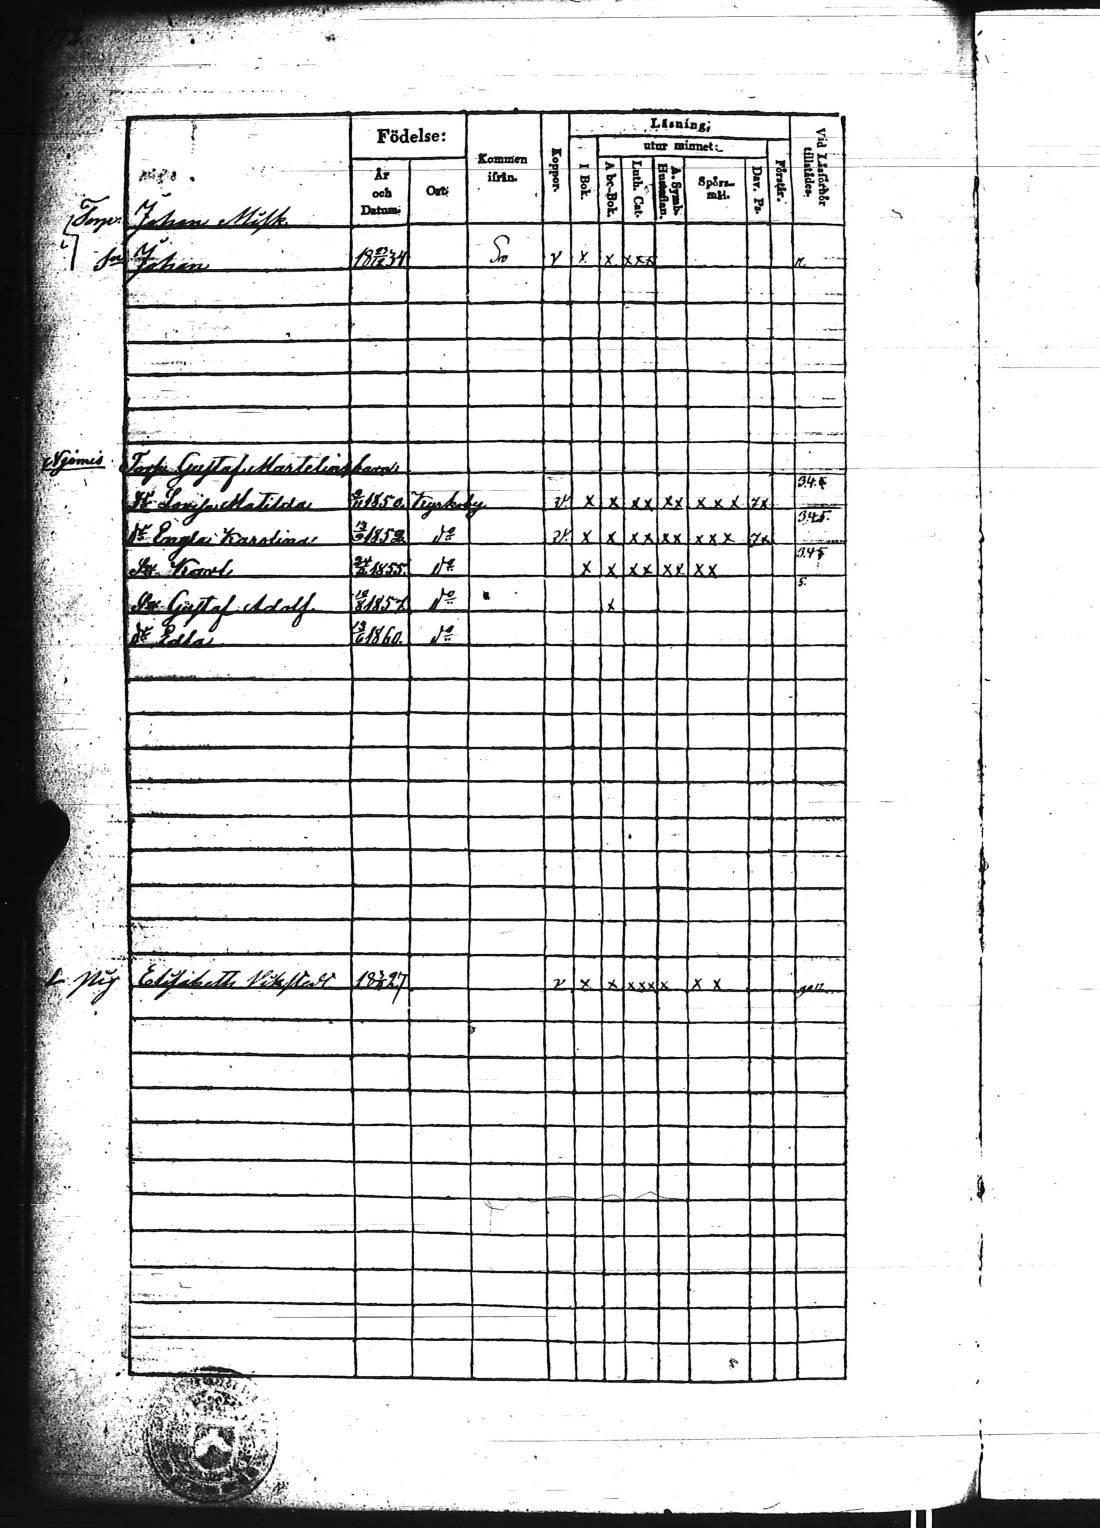 Födelse:
Läsning;
utur minnet:
År och Datum:
Ort:
Kommen ifrån.
Koppor.
I Bok.
Abc-Bok.
Luth. Cat.
A. Symb. Hustaflan.
Spörsmål.
Dav. Ps.
Förstår.
Vid Läsförhör tillstädes.
Torp. Johan Misk
Sn Johan 18 34 v x x xxx
Torp Gustaf Martelin
Dr Lovisa Matilda 1850. Kyrkoby v. x x xx xx xxx 7x 3.4.5
Dr Engla Karolina 13 1852 do v. x x xx xx xxx 7x 3.4.5.
Sn Karl 24 1855. do x x xx xx xx 3.4.5
Sn Gustaf Adolf 10/8 1857 do x 5.
Dr Edla 13/6 1860. do
Pig Elisabeth Vikstedt 18 27 v x x xxx x x x